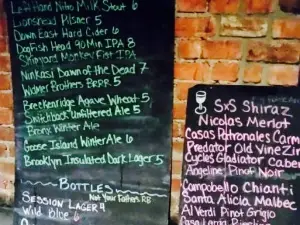 Left Hand Nitro Milk Stout 6
Lionshead Pilsner 5
Down East Hard Cider 6
Dogfish Head 90 Min IPA 8
Shipyard Monkey Fist IPA
Ninkasi Dawn of the Dead 7
Widmer Brothers BRRR 5
Breckenridge Agave Wheat 5
Switchback Unfiltered Ale 5
Bronx Winter Ale
Goose Island Winter Ale 6
Brooklyn Insulated Dark Lager 5
BOTTLES
Not Your Fathers RB
SESSION LAGER 4
Wild Blue 6
SxS Shiraz
Nicolas Merlot
Casas Patronales Carm
Predator Old Vine Zin
Cycles Gladiator Caber
Angeline Pinot Noir
Campobello Chianti
Santa Alicia Malbec
Al Verdi Pinot Grigio